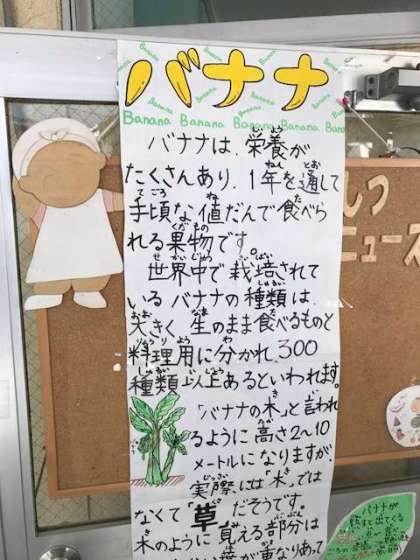 バナナ
Banana Banana Banana Banana Banana
Banana Banana Banana Banana Banana
バナナは、栄養が
たくさんあり、1年を通して
手頃な値だんで食べら
れる果物です。
世界中で栽培されて
いるバナナの種類は、
大きく生のまま食べるものと
料理用に分かれ、300
種類以上あるといわれます。
「バナナの木」と言われ
るように高さ2~10
メートルになりますが、
実際には「木」では
なくて「草」だそうです。
木のように見える部分は
葉が重なりあって
しつ
ニュース
バナナが